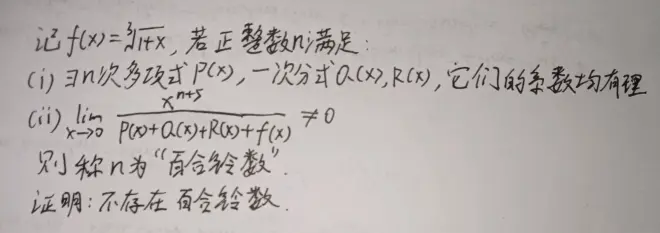 记 f(x)=∛1+x, 若正整数n满足:
(i) ∃n次多项式P(x), 一次分式Q(x),R(x), 它们的系数均有理
(ii) lim x→0 x^{n+5} / P(x)+Q(x)+R(x)+f(x) ≠0
则称n为“百合铃数”.
证明: 不存在百合铃数.